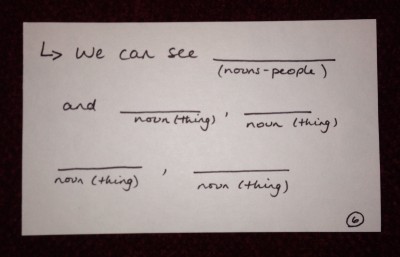 ↳ We can see ____________
(nouns-people)
and ________ , ________
noun (thing) noun (thing)
________ , ________
noun (thing) noun (thing)
6